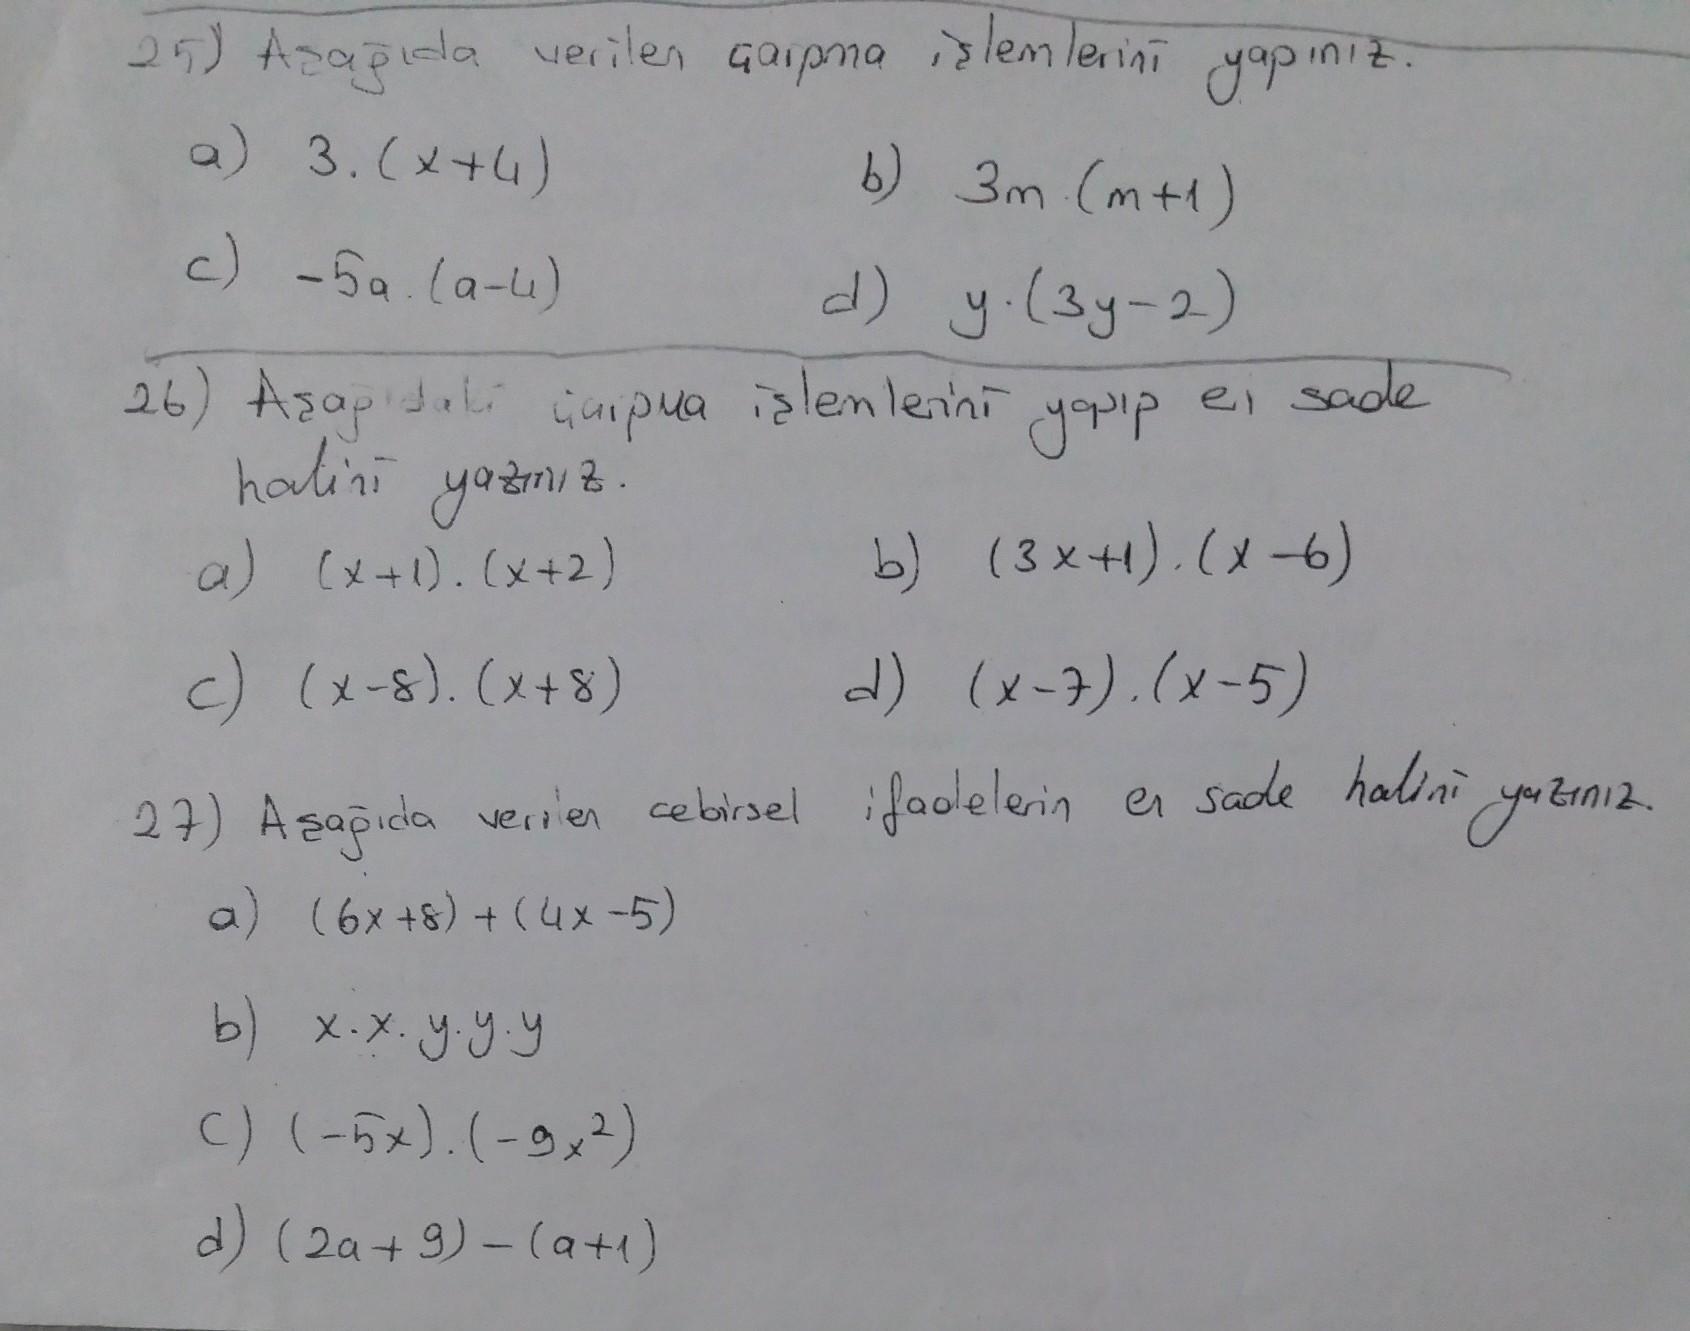 25) Aşağıda verilen çarpma işlemlerini yapınız.
a) 3.(x+4) b) 3m.(m+1)
c) -5a.(a-4) d) y.(3y-2)
26) Aşağıdaki çarpma işlemlerini yapıp en sade
halini yazınız.
a) (x+1).(x+2) b) (3x+1).(x-6)
c) (x-8).(x+8) d) (x-7).(x-5)
27) Aşağıda verilen cebirsel ifadelerin en sade halini yazınız.
a) (6x+8)+(4x-5)
b) x.x.y.y.y
c) (-5x).(-9x²)
d) (2a+9)-(a+1)